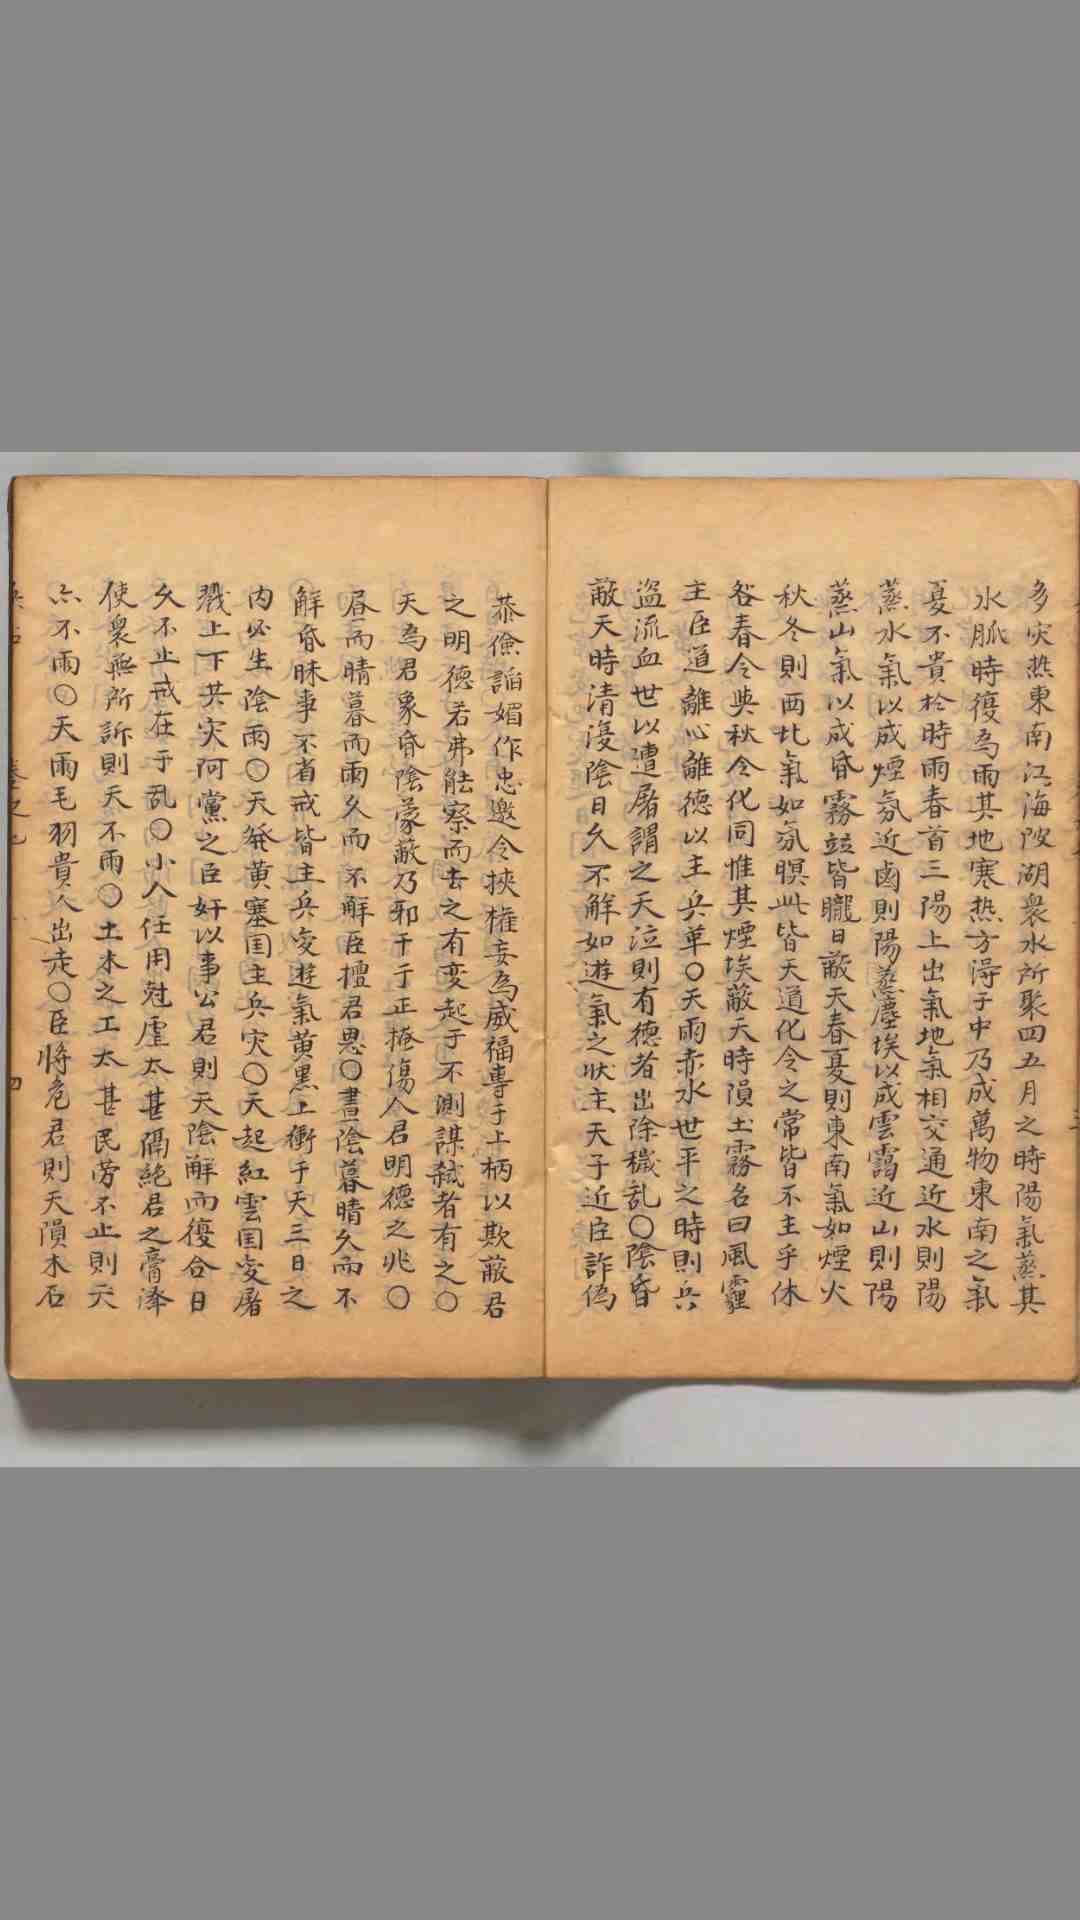 多灾热東南江海陂湖衆水所聚四五月之時陽氣蒸其
水脈時復為雨其地寒热方淂于中乃成萬物東南之氣
憂不貴於時雨春首三陽上出氣地氣相交通近水則陽
蒸水氣以成煙氛近鹵則陽蒸塵埃以成雲靄近山則陽
蒸山氣以成昏霧竝皆朧日蔽天春夏則東南氣如煙火
秋冬則西北氣如氛瞑此皆天道化令之常皆不主乎休
咎春令與秋令化同惟其煙埃蔽天時隕土霧名曰風霾
主臣道離心離德以主兵革〇天雨赤水世平之時則兵
盗流血世以遭屠謂之天泣則有德者出除穢乱〇陰昏
蔽天時清濅陰日久不解如遊氣之狀主天子近臣詐偽
恭儉謟媚作忠邀令挾權妄為威福專于上柄以欺蔽君
之明德若弗能察而去之有变起于不測謀弒者有之〇
天為君象昏陰蒙蔽乃邪干于正掩傷人君明德之兆〇
昼而晴暮而雨久而不解臣擅君恩〇晝陰暮晴久而不
解昏昧事不省戒皆主兵変遊氣黄黒上衝于天三日之
内必生陰雨〇天発黄塞国主兵灾〇天起紅雲国変屠
戮上下共灾阿黨之臣奸以事公君則天陰解而復合日
久不止戒在于乱〇小人任用尅虐太甚隔絶君之膏澤
使衆無所訴則天不雨〇土木之工太甚民劳不止則天
亦不雨〇天雨毛羽貴人出走〇臣將危君則天隕木石
四